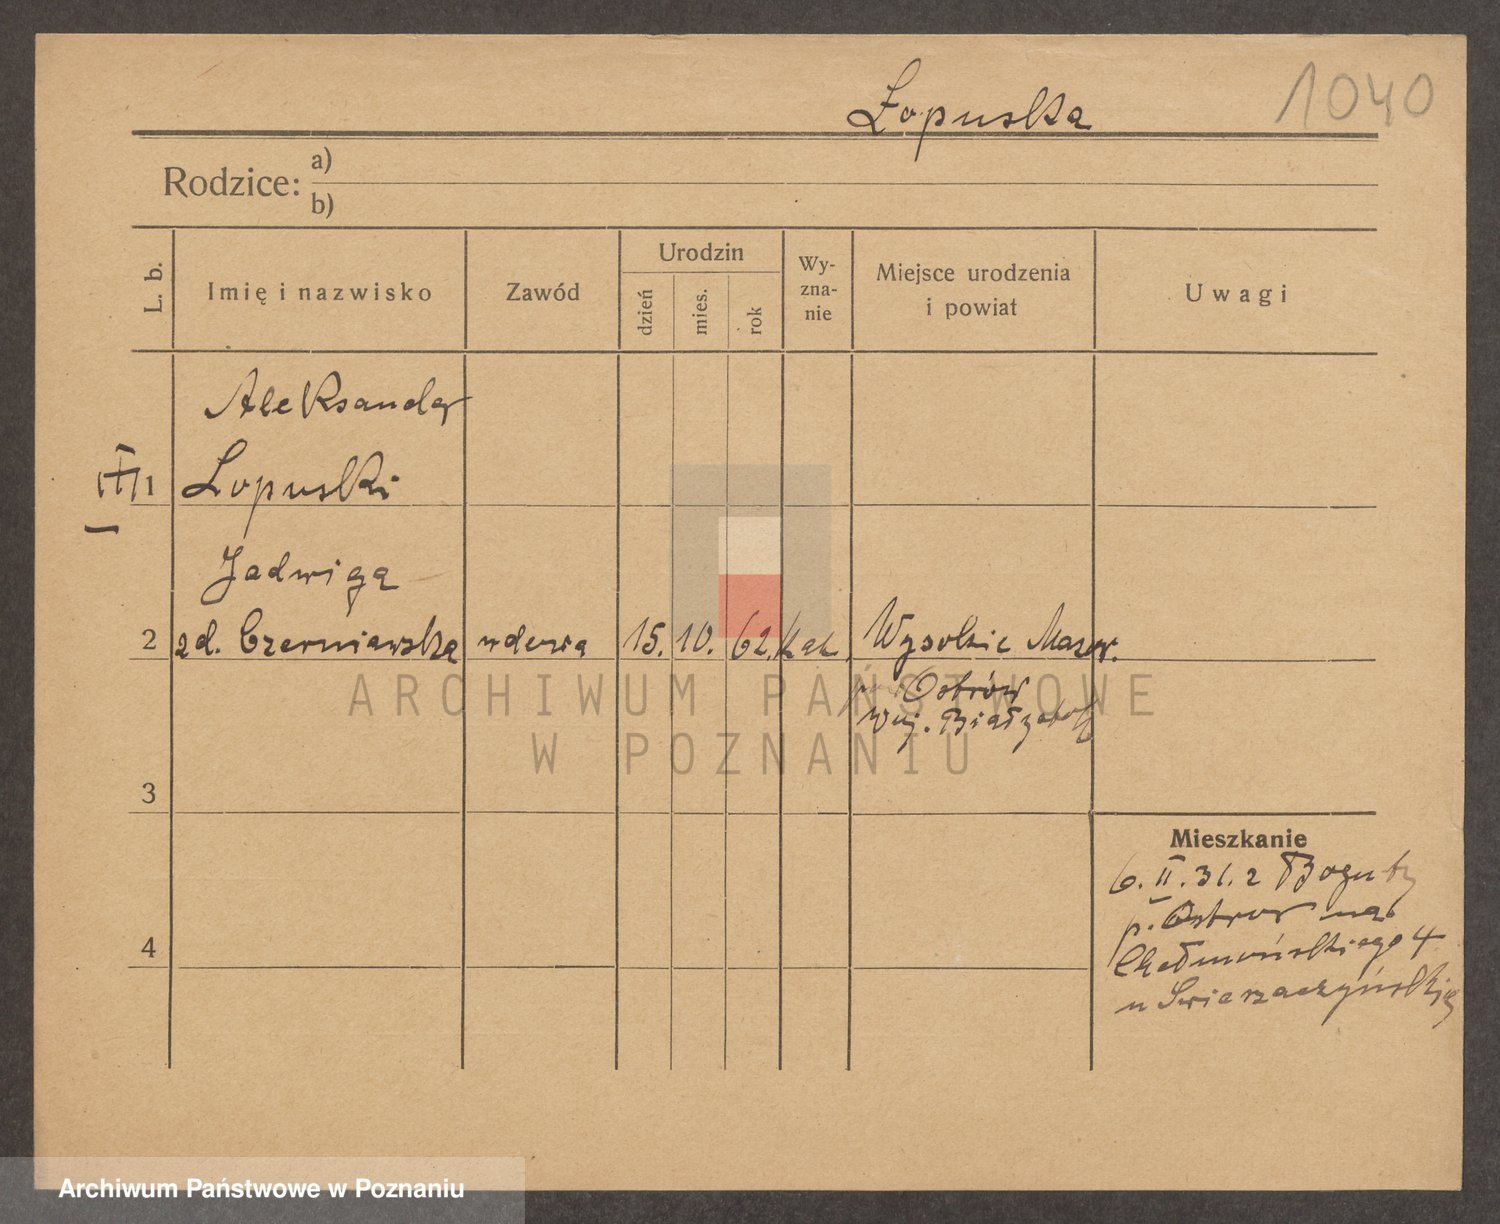 1040
Łopuska
Rodzice: a)
b)
L. b.
Imię i nazwisko
Zawód
Urodzin
dzień
mies.
rok
Wy-
zna-
nie
Miejsce urodzenia
i powiat
Uwagi
Aleksander
1 Łopuski
Jadwiga
2 zd. Czerniawska wdowa 15. 10. 62. kat. Wysokie Mazow.
p. Ostrów
woj. Białystok
3
4
Mieszkanie
6. II. 31. z Boguty
p. Ostrow na
Chełmońskiego 4
u Swierzaczyńskiej
ARCHIWUM PAŃSTWOWE
W POZNANIU
Archiwum Państwowe w Poznaniu